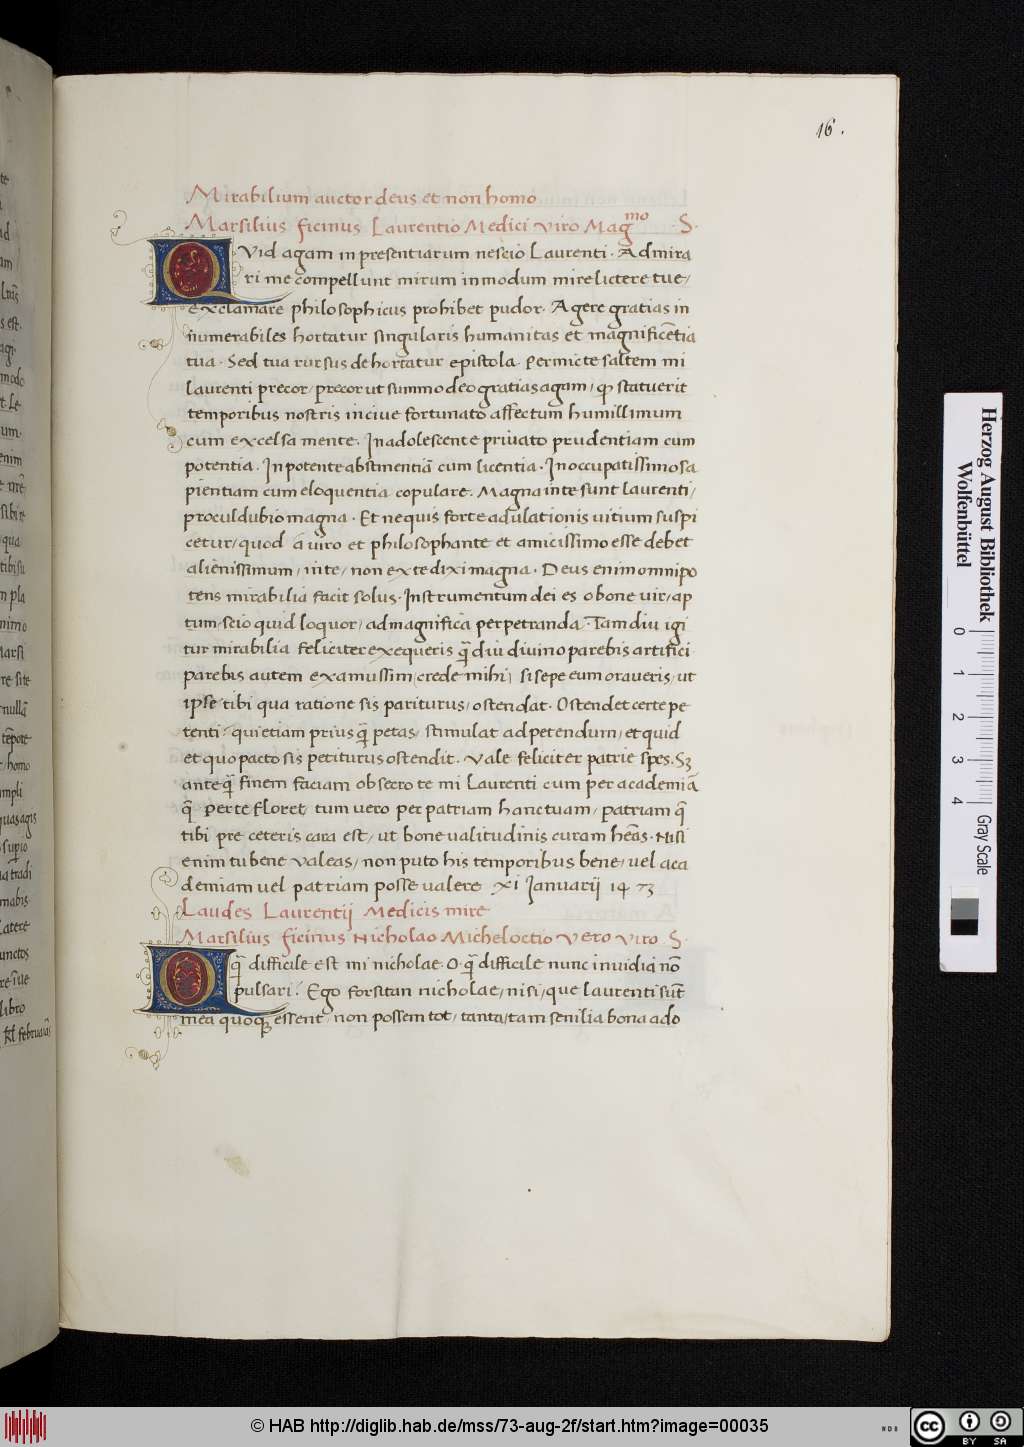 16.
Mirabilium auctor deus et non homo
Marsilius ficinus Laurentio Medici viro Mag^mo S.
QVid agam in presentiarum nescio Laurenti. Admira
ri me compellunt mirum in modum mire lictere tue/
exclamare philosophicus prohibet pudor. Agere gratias in
numerabiles hortatur singularis humanitas et magnificẽtia
tua. Sed tua rursus dehortatur epistola. Permicte saltem mi
laurenti precor/ precor ut summo deo gratias agam/ ꝙ statuerit
temporibus nostris in ciue fortunato affectum humillimum
cum excelsa mente. In adolescente priuato prudentiam cum
potentia. In potente abstinentiã cum licentia. In occupatissimo sa
pientiam cum eloquentia copulare. Magna in te sunt laurenti/
procul dubio magna. Et ne quis forte adulationis uitium suspi
cetur/ quod a uiro et philosophante et amicissimo esse debet
alienissimum/ in te/ non ex te dixi magna. Deus enim omnipo
tens mirabilia facit solus. Instrumentum dei es o bone uir/ ap
tum/ scio quid loquor/ ad magnifica perpetranda. Tam diu igi
tur mirabilia feliciter exequeris q̃ diu diuino parebis artifici.
parebis autem examussim (crede mihi) si sepe eum oraueris/ ut
ipse tibi qua ratione sis pariturus/ ostendat. Ostendet certe pe
tenti/ qui etiam prius q̃ petas/ stimulat ad petendum/ et quid
et quo pacto sis petiturus ostendit. Vale feliciter patrie spes. Sꝫ
ante q̃ finem faciam obsecro te mi Laurenti cum per academiã
q̃ per te floret/ tum uero per patriam hanc tuam/ patriam q̃
tibi pre ceteris cara est/ ut bone ualitudinis curam hẽas. Nisi
enim tu bene valeas/ non puto his temporibus bene/ uel aca
demiam uel patriam posse ualere xi Januarij 1473
Laudes Laurentij Medicis mire
Marsilius ficinus Nicholao Micheloctio vero viro S.
Q q̃ difficile est mi nicholae. O q̃ difficile nunc inuidia nõ
pulsari. Ego forsitan nicholae/ nisi/ que laurenti sũt
mea quoqꝫ essent/ non possem tot/ tanta/ tam senilia bona ado
Herzog August Bibliothek
Wolfenbüttel
0 1 2 3 4
Gray Scale
© HAB http://diglib.hab.de/mss/73-aug-2f/start.htm?image=00035
WDB
cc BY SA